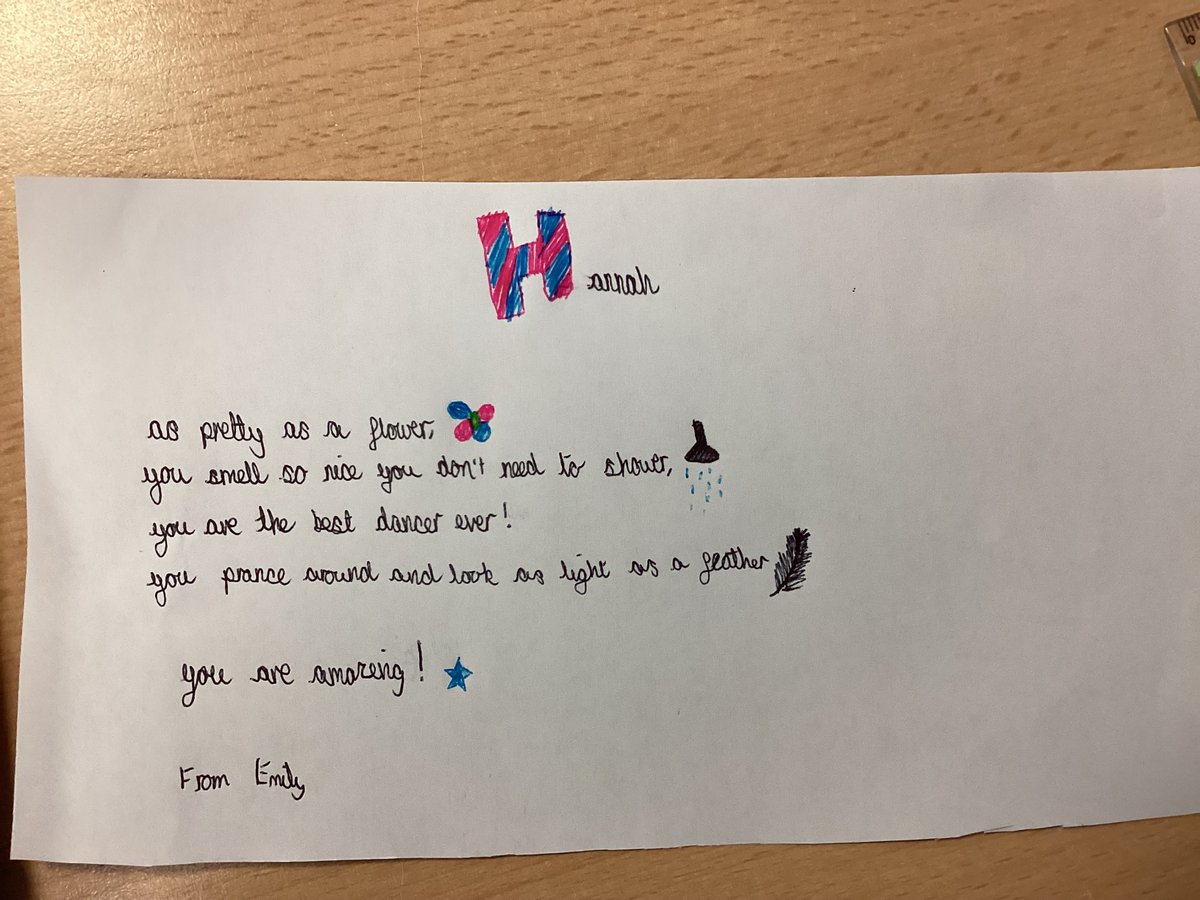 Hannah
as pretty as a flower,
you smell so nice you don't need to shower,
you are the best dancer ever!
you prance around and look as light as a feather
you are amazing!
From Emily